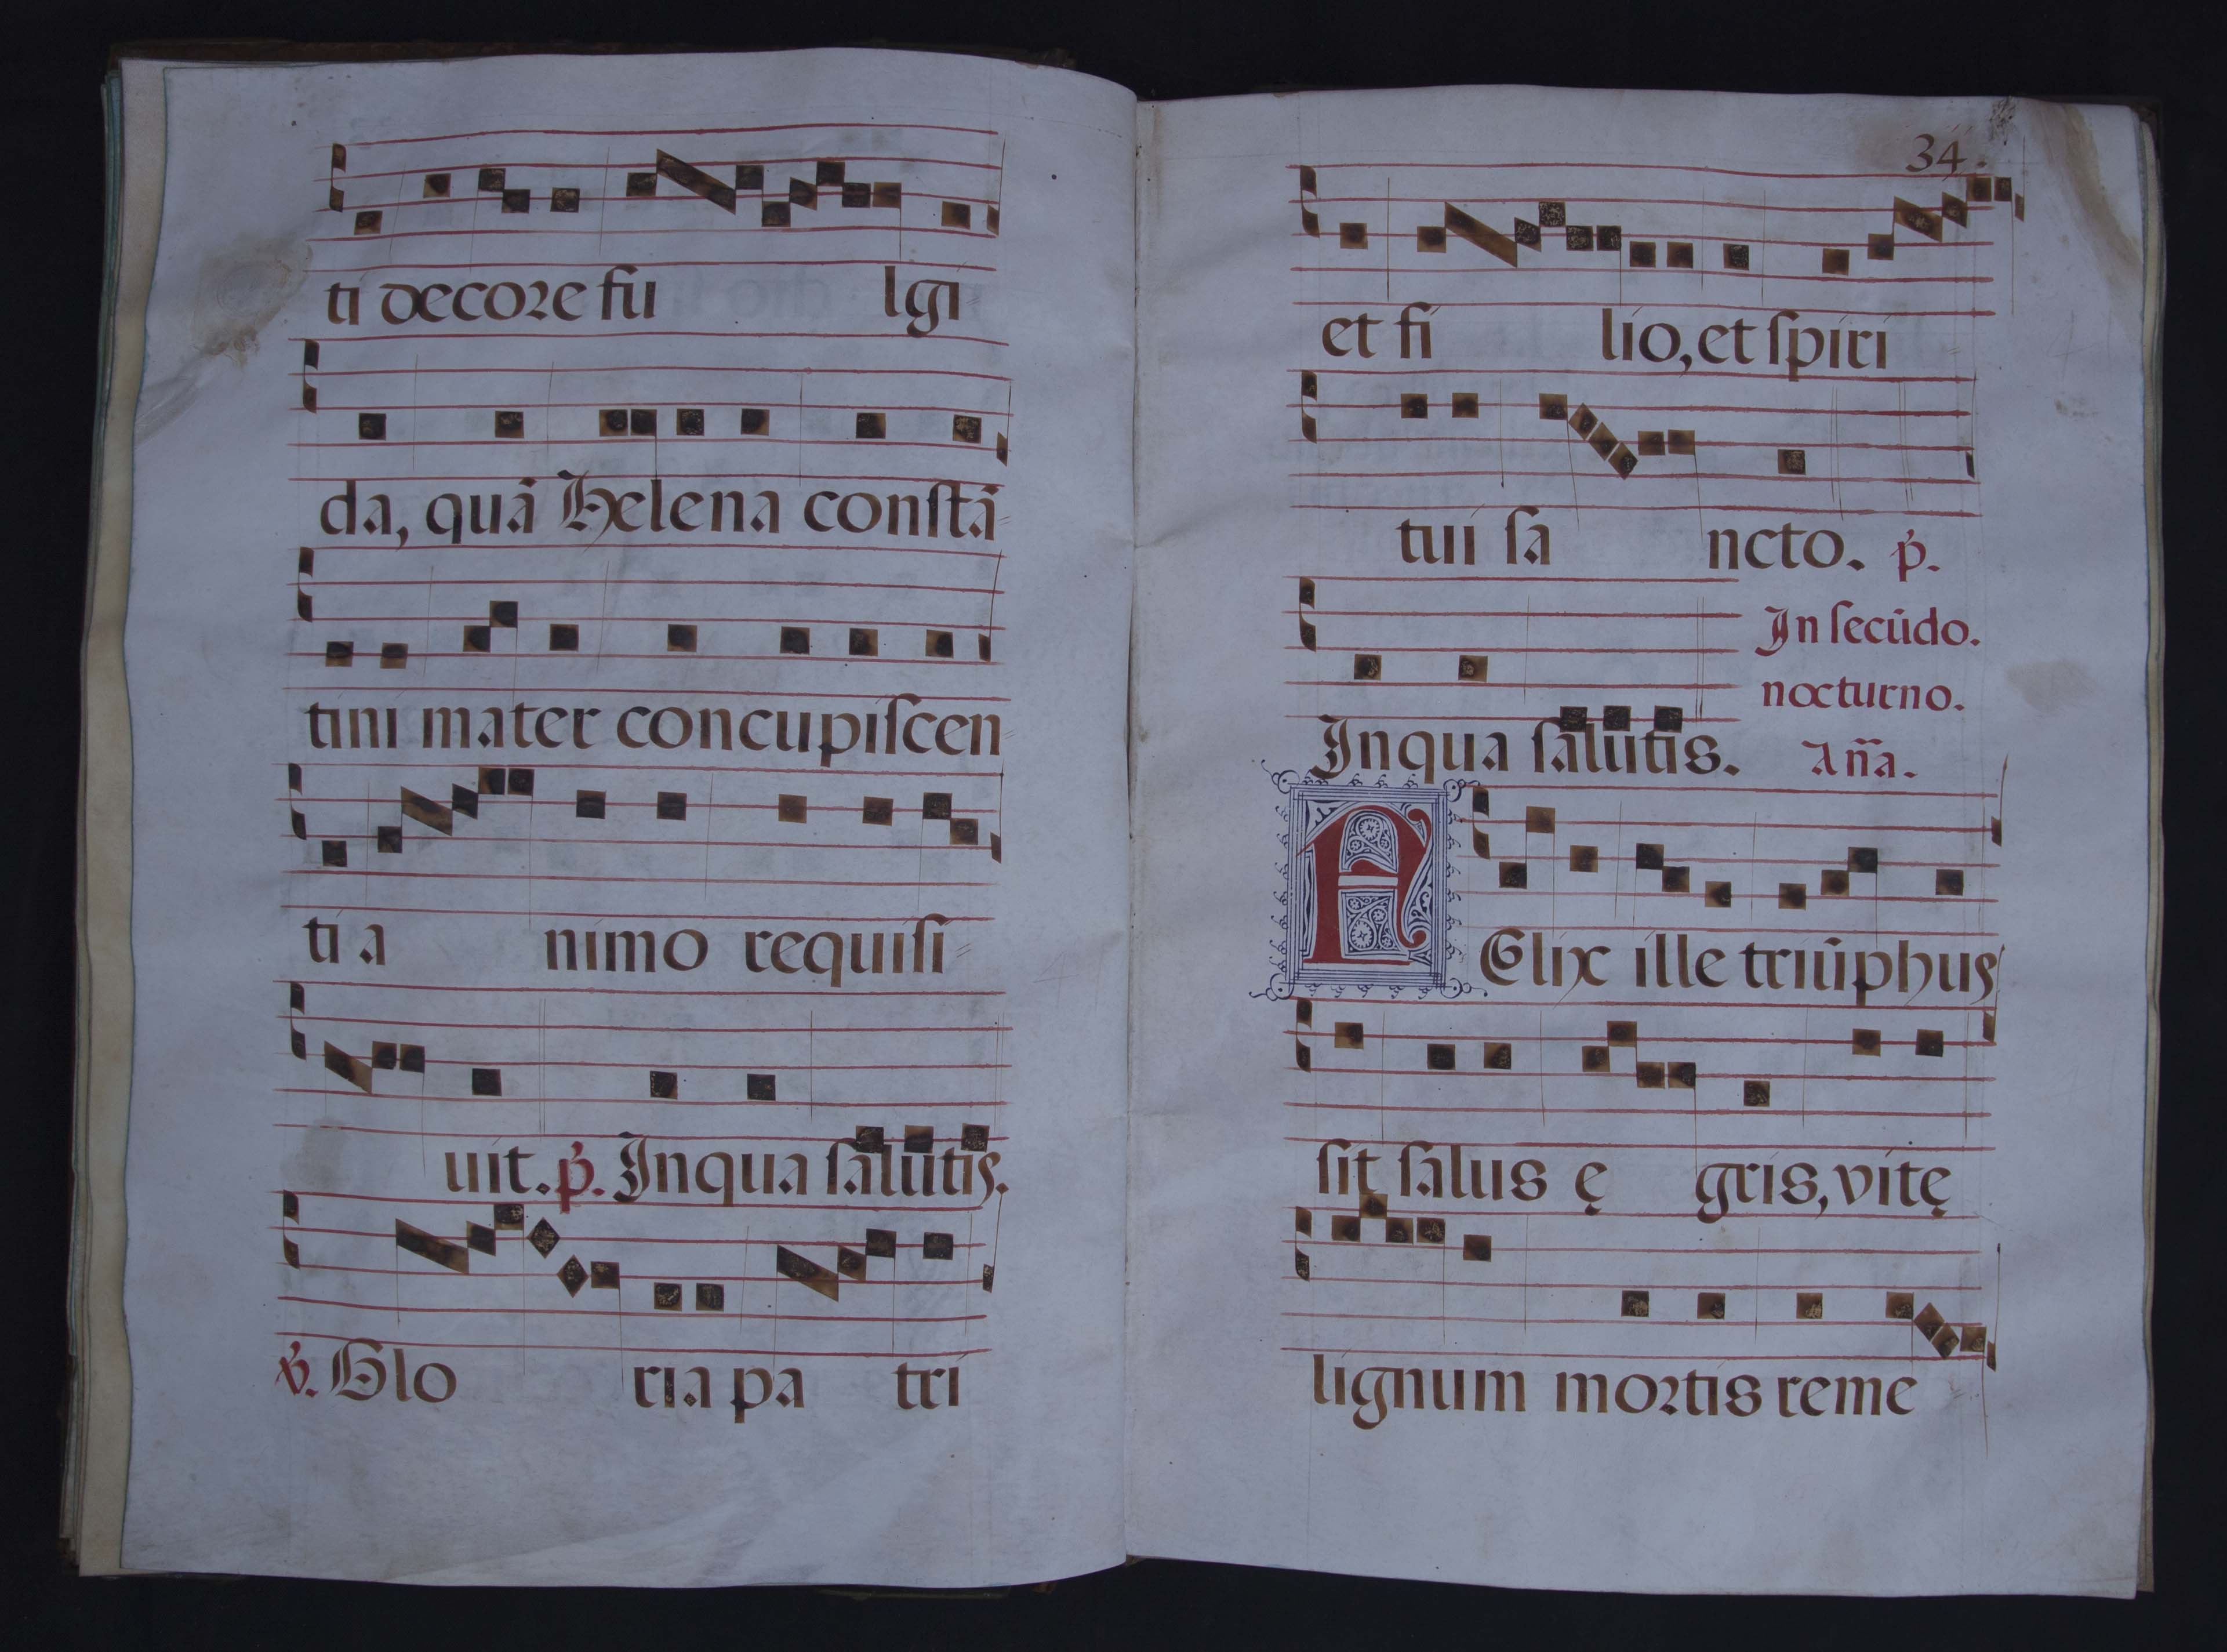 ti decore fu lgi
da, quā Helena conſtā
tini mater concupiſcen
ti a nimo requiſi
uit. p̃. Inqua ſalutis.
℣. Glo ria pa tri
34.
et fi lio, et ſpiri
tui ſa ncto. p̃.
In ſecūdo.
nocturno.
Inqua ſalutis. Añа.
F Elix ille triūphus
ſit ſalus ę gris, vitę
lignum mortis reme